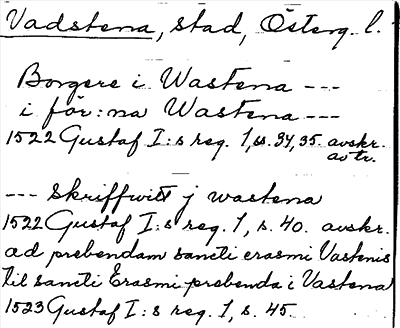 Vadstena, stad, Österg. l.
Borgere i Wastena ---
i för:na Wastena ---
1522 Gustaf I:s reg. 1, s. 34, 35. avskr.
av tr.
--- Skriffwitt j wastena
1522 Gustaf I:s reg. 1, s. 40. avskr.
ad prebendam sancti erasmi Vastenis
til sancti Erasmi prebenda i Vastena
1523 Gustaf I:s reg. 1, s. 45.